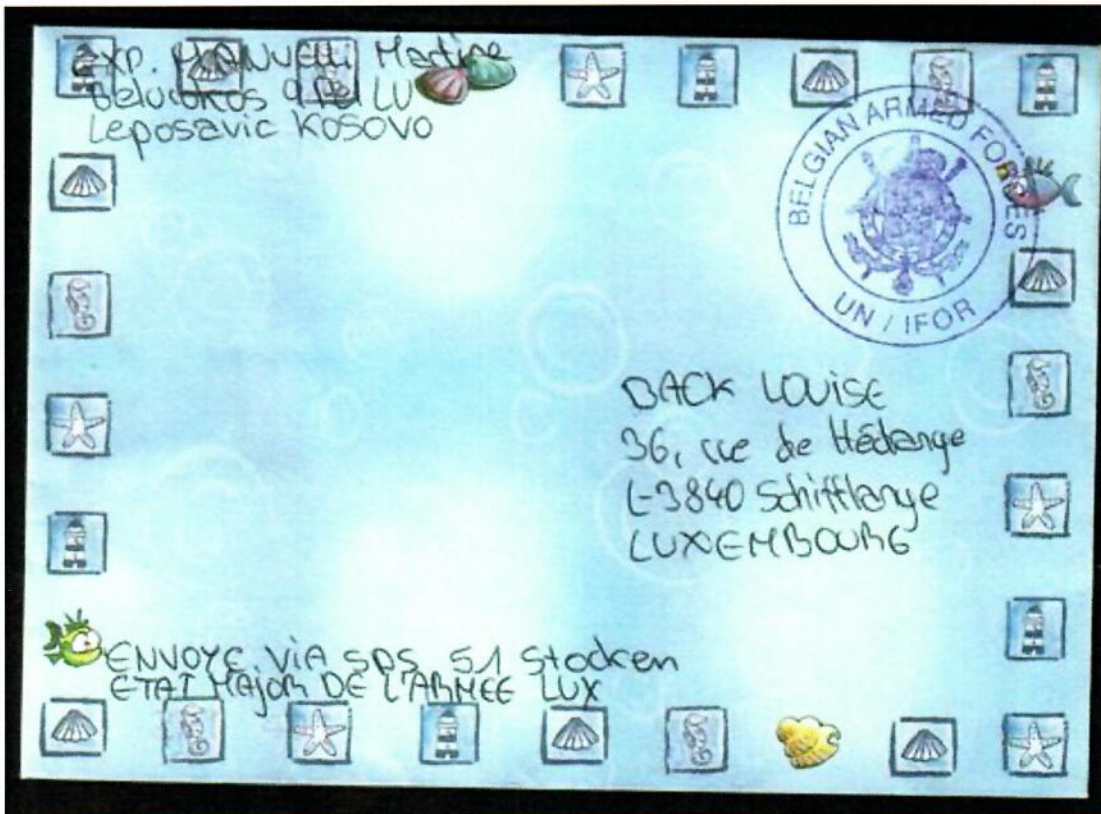 Exp. MANUELLI Martine
Belukos 9 Pel LU
Leposavic KOSOVO
BELGIAN ARMED FORCES
UN / IFOR
BACK LOUISE
36, rue de Hédange
L-3840 Schifflange
LUXEMBOURG
ENVOYE ViA SPS 51 Stocken
ETAT MAJOR DE L'ARMEE LUX